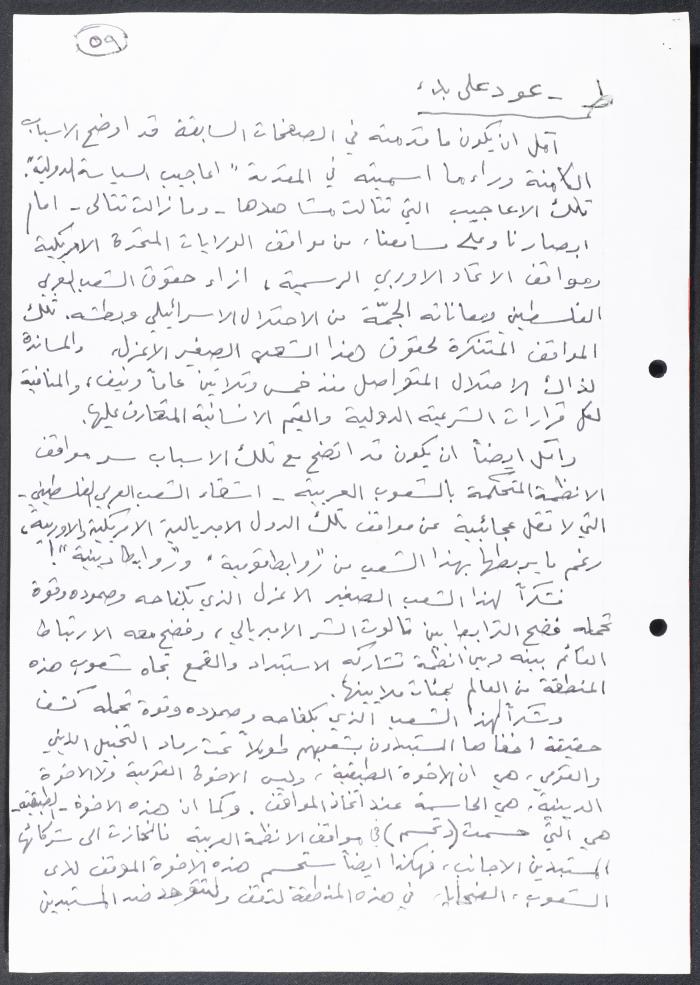 ٥٩
ط - عود على بدء
آمل ان يكون ما قدمته في الصفحات السابقة قد اوضح الاسباب
الكامنة وراء ما اسميته في المقدمة "اعاجيب السياسة الدولية".
تلك الاعاجيب التي تتالت مشاهدها - وما زالت تتالى - امام
ابصارنا وعلى مسامعنا، من مواقف الولايات المتحدة الامريكية
ومواقف الاتحاد الاوربي الرسمية، ازاء حقوق الشعب العربي
الفلسطيني ومعاناته الجمّة من الاحتلال الاسرائيلي وبطشه. تلك
المواقف المتنكرة لحقوق هذا الشعب الصغير الاعزل، والمساندة
لذاك الاحتلال المتواصل منذ خمس وثلاثين عاماً ونيف، والمنافية
لكل قرارات الشرعية الدولية والقيم الانسانية المتعارف عليها.
وآمل ايضاً ان يكون قد اتضح مع تلك الاسباب سر مواقف
الانظمة المتحكمة بالشعوب العربية - اشقاء الشعب العربي الفلسطيني -
التي لا تقل عجائبية عن مواقف تلك الدول الامبريالية الامريكية والاوربية،
رغم ما يربطها بهذا الشعب من "روابط قومية" و"روابط دينية"!
فشكراً لهذا الشعب الصغير الاعزل الذي بكفاحه وصموده وقوة
تحمله فضح الترابط بين ثالوث الشر الامبريالي، وفضح معه الارتباط
القائم بينه وبين انظمة تشاركه الاستبداد والقمع تجاه شعوب هذه
المنطقة من العالم بمئات ملايينها.
وشكراً لهذا الشعب الذي بكفاحه وصموده وقوة تحمله كشف
حقيقة اخفاها المستبدون بشعوبهم طويلاً تحت رماد التجهيل الديني
والقومي، هي ان الاخوة الطبقية، وليس الاخوة القومية ولا الاخوة
الدينية، هي الحاسمة عند اتخاذ المواقف. وكما ان هذه الاخوة - الطبقية -
هي التي حسمت (وتحسم) في مواقف الانظمة العربية فانحازت الى شركائها
المستبدين الاجانب، فهكذا ايضاً ستحسم هذه الاخوة الموقف لدى
الشعوب، الضحايا، في هذه المنطقة لتقف ولتتوحد ضد المستبدين